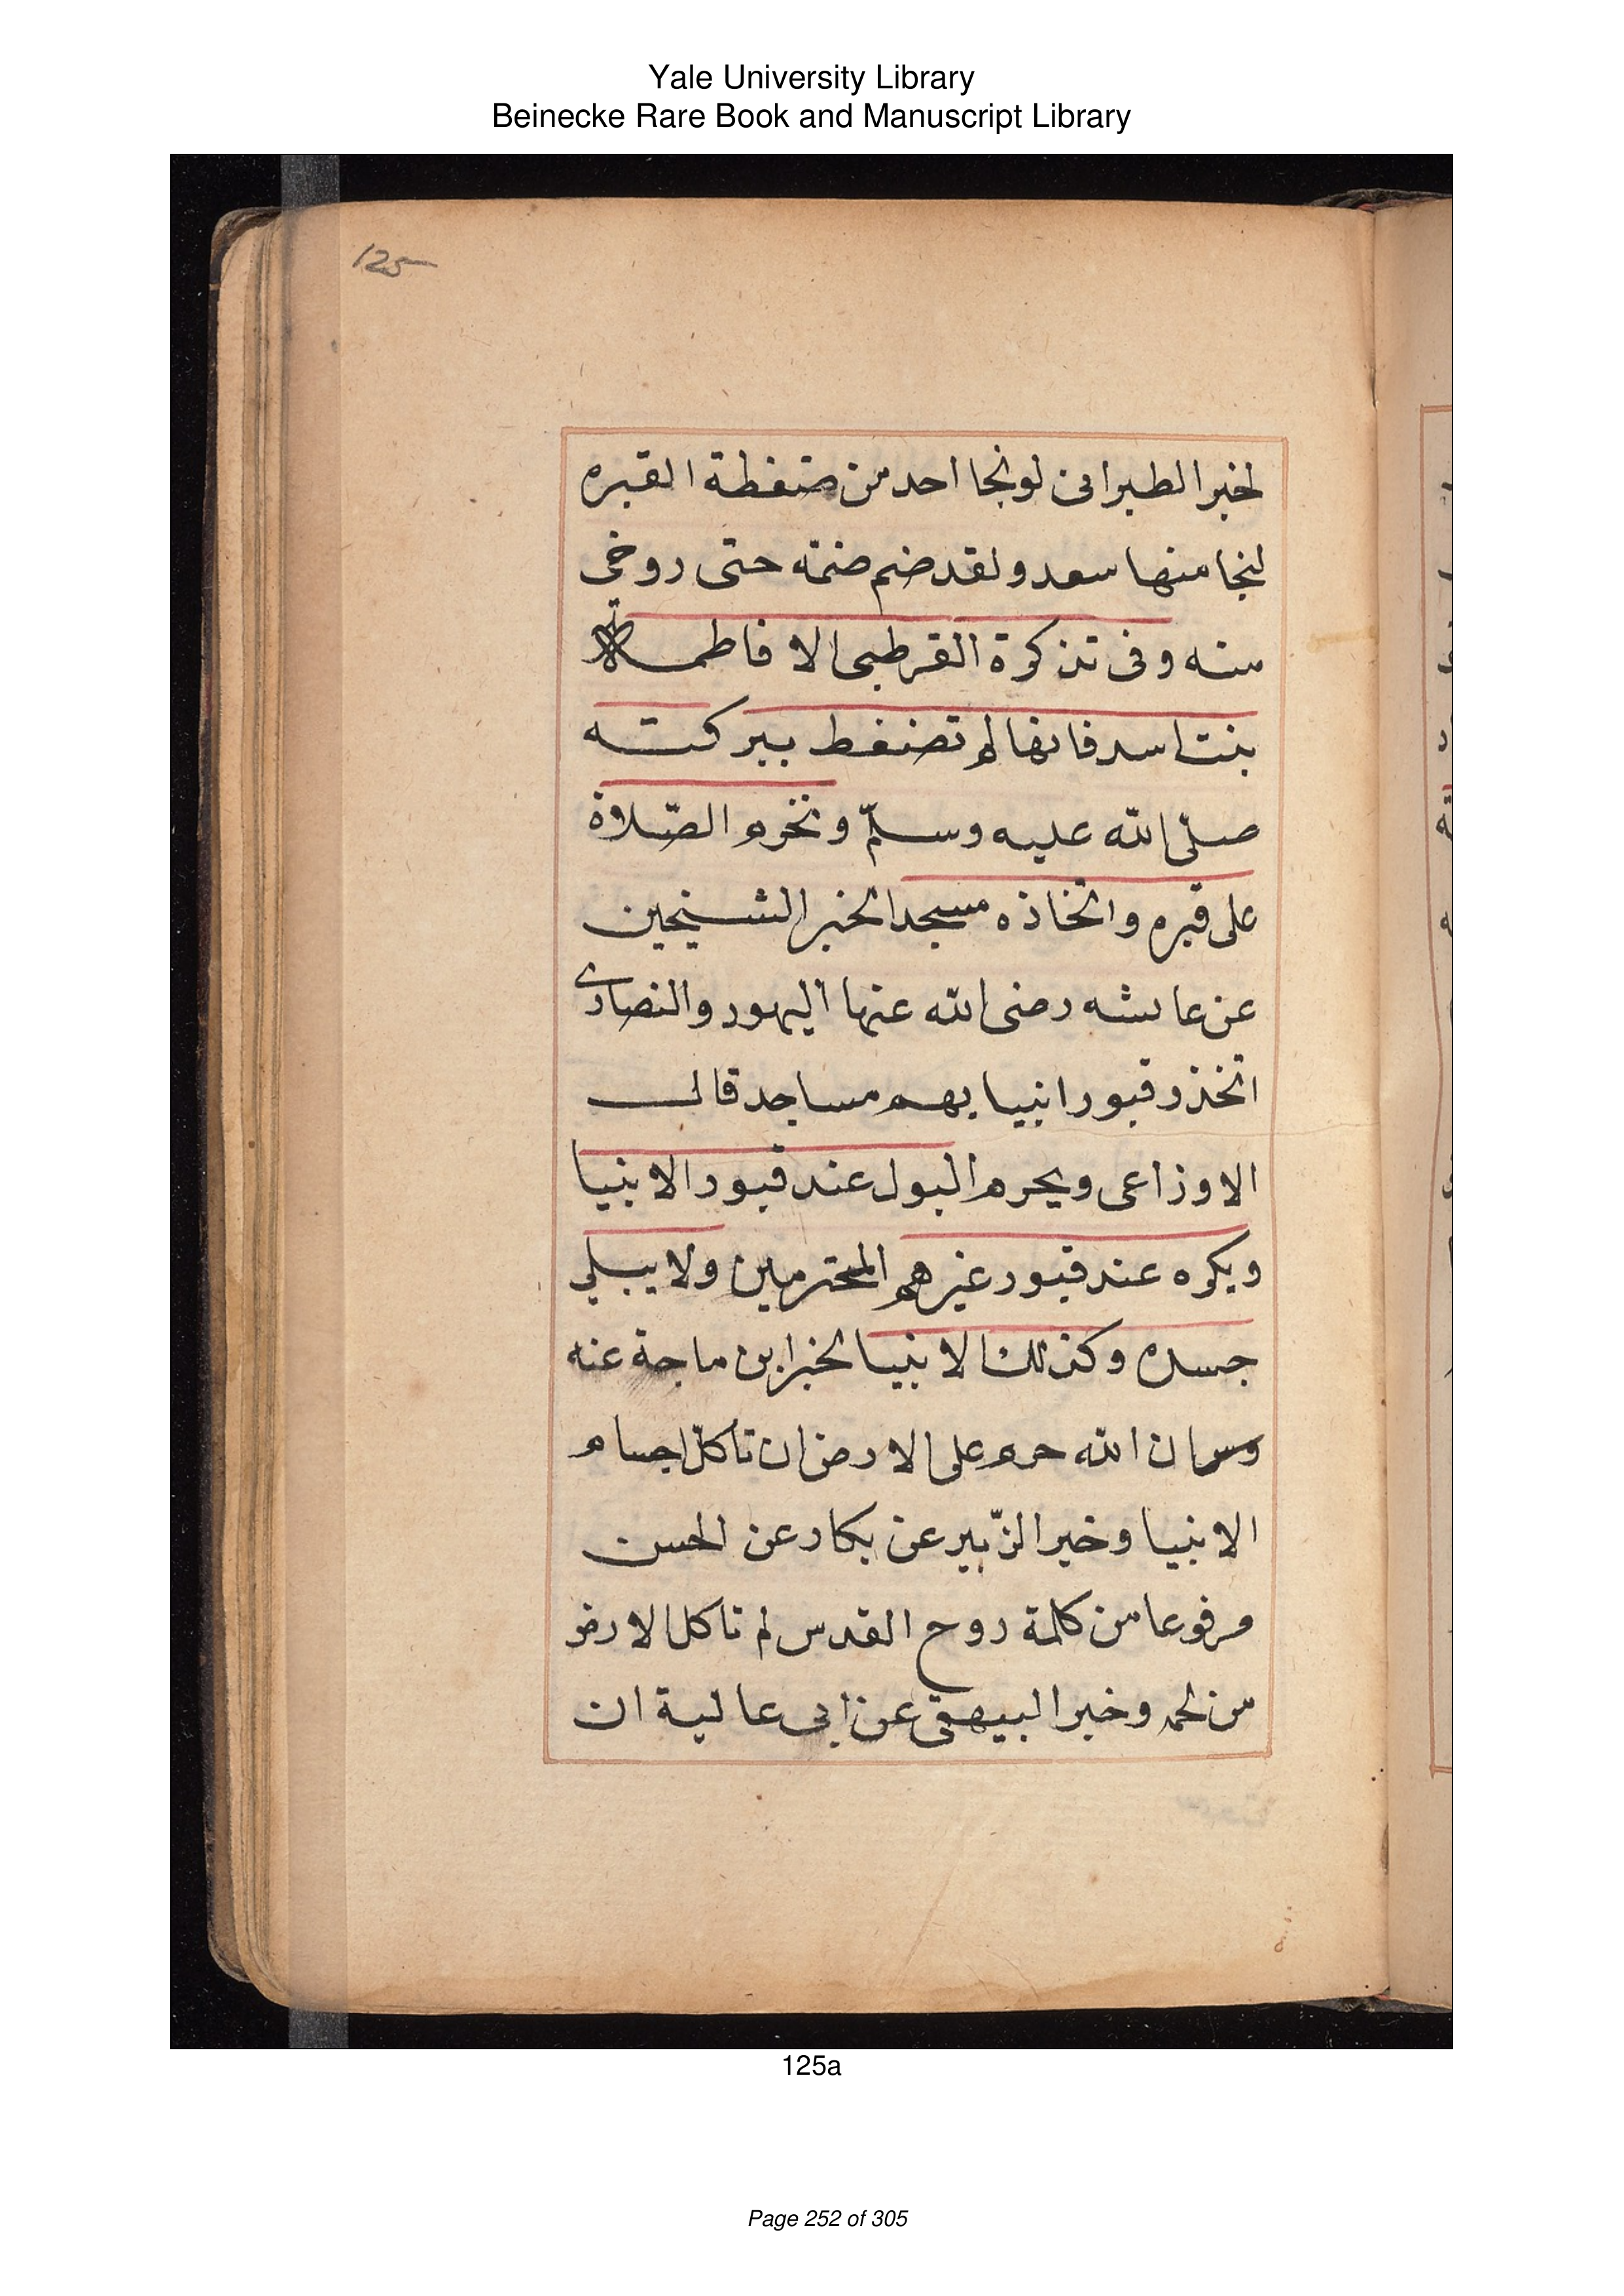 Yale University Library
Beinecke Rare Book and Manuscript Library
125
لخبر الطبرانى لونجا احد من ضغطة القبره
لنجا منها سعد ولقد ضم ضمة حتى روخى
منه وفى تذكرة القرطبى الا فاطمة
بنت اسد فانها لم تضغط ببركته
صلّى الله عليه وسلّم وتحرم الصّلاة
على قبره واتخاذه مسجدا لخبر الشيخين
عن عايشه رضى الله عنها اليهود والنصارى
اتخذو قبور انبيايهم مساجد قال
الاوزاعى ويحرم البول عند قبور الانبيا
ويكره عند قبور غيرهم المحترمين ولا يبلى
جسده وكذلك الانبيا لخبر ابن ماجة عنه
ان الله حرم على الارض ان تاكل اجسام
الانبيا وخبر الزّبير عن بكار عن الحسن
مرفوعا من كلمة روح القدس لم تاكل الارض
من لحمه وخبر البيهقى عن ابى عالية ان
125a
Page 252 of 305